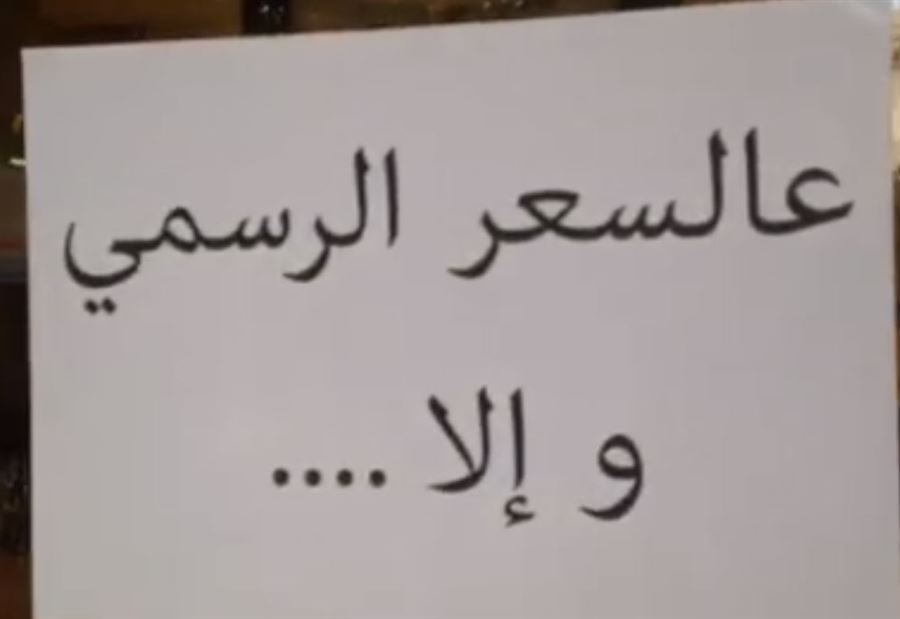 عالسعر الرسمي
و إلا ....